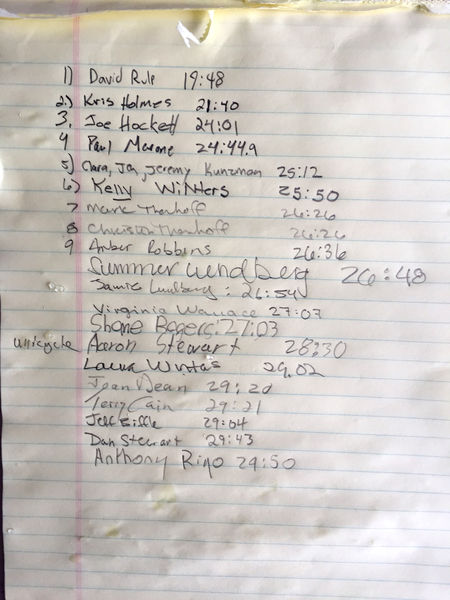 1) David Rule 19:48
2.) Kris Holmes 21:40
3. Joe Hackett 24:01
4 Paul Marone 24:44.9
5) Clara, Jen, Jeremy Kunzman 25:12
6) Kelly Winters 25:50
7 Mark Thanhoff 26:26
8 Christin Thanhoff 26:26
9 Amber Robbins 26:36
Summer Lundberg 26:48
Jamie Lundberg : 26:54
Virginia Wallace 27:07
Shane Bogers: 27:03
unicycle Aaron Stewart 28:30
Laura 29.02
Jean Dean 29:20
Terry Cain 29:21
Jeff 29:04
Dan Stewart 29:43
Anthony Rigo 29:50